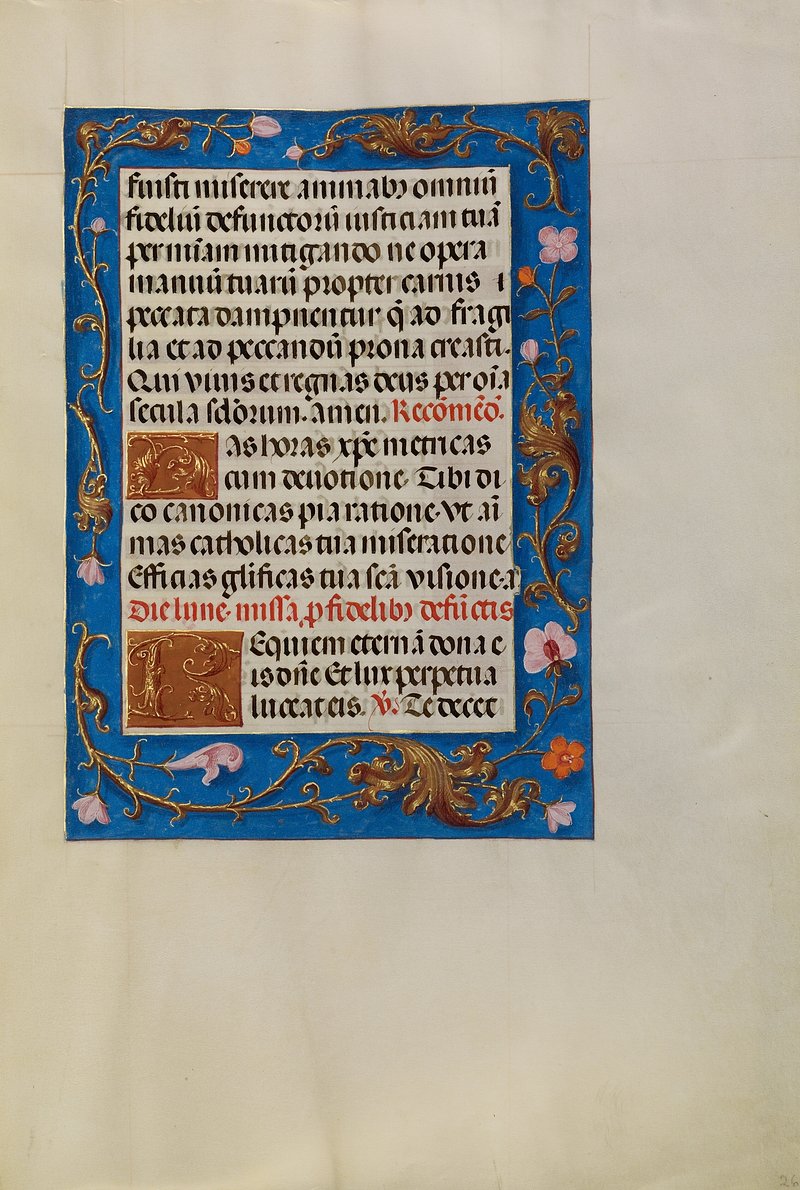 fuisti miserere animabꝫ omniū
fideliū defunctorū iusticiam tuā
per mīam mitigando ne opera
manuū tuarū propter carnis i
peccata dampnentur q̄ ad fragi
lia et ad peccandū prona creasti.
Qui viuis et regnas deus per oīa
secula sclōrum. amen. Recōmēd̄.
Has horas xp̄e metricas
cum deuotione. Tibi di
co canonicas pia ratione. vt aī
mas catholicas tua miseratione
Efficias gl̄ificas tua scā visione. a
Die lune. missa, ꝓ fidelibꝫ defūctis
REquiem eternā dona e
is dn̄e Et lux perpetua
luceat eis. ℣. Te decet
26